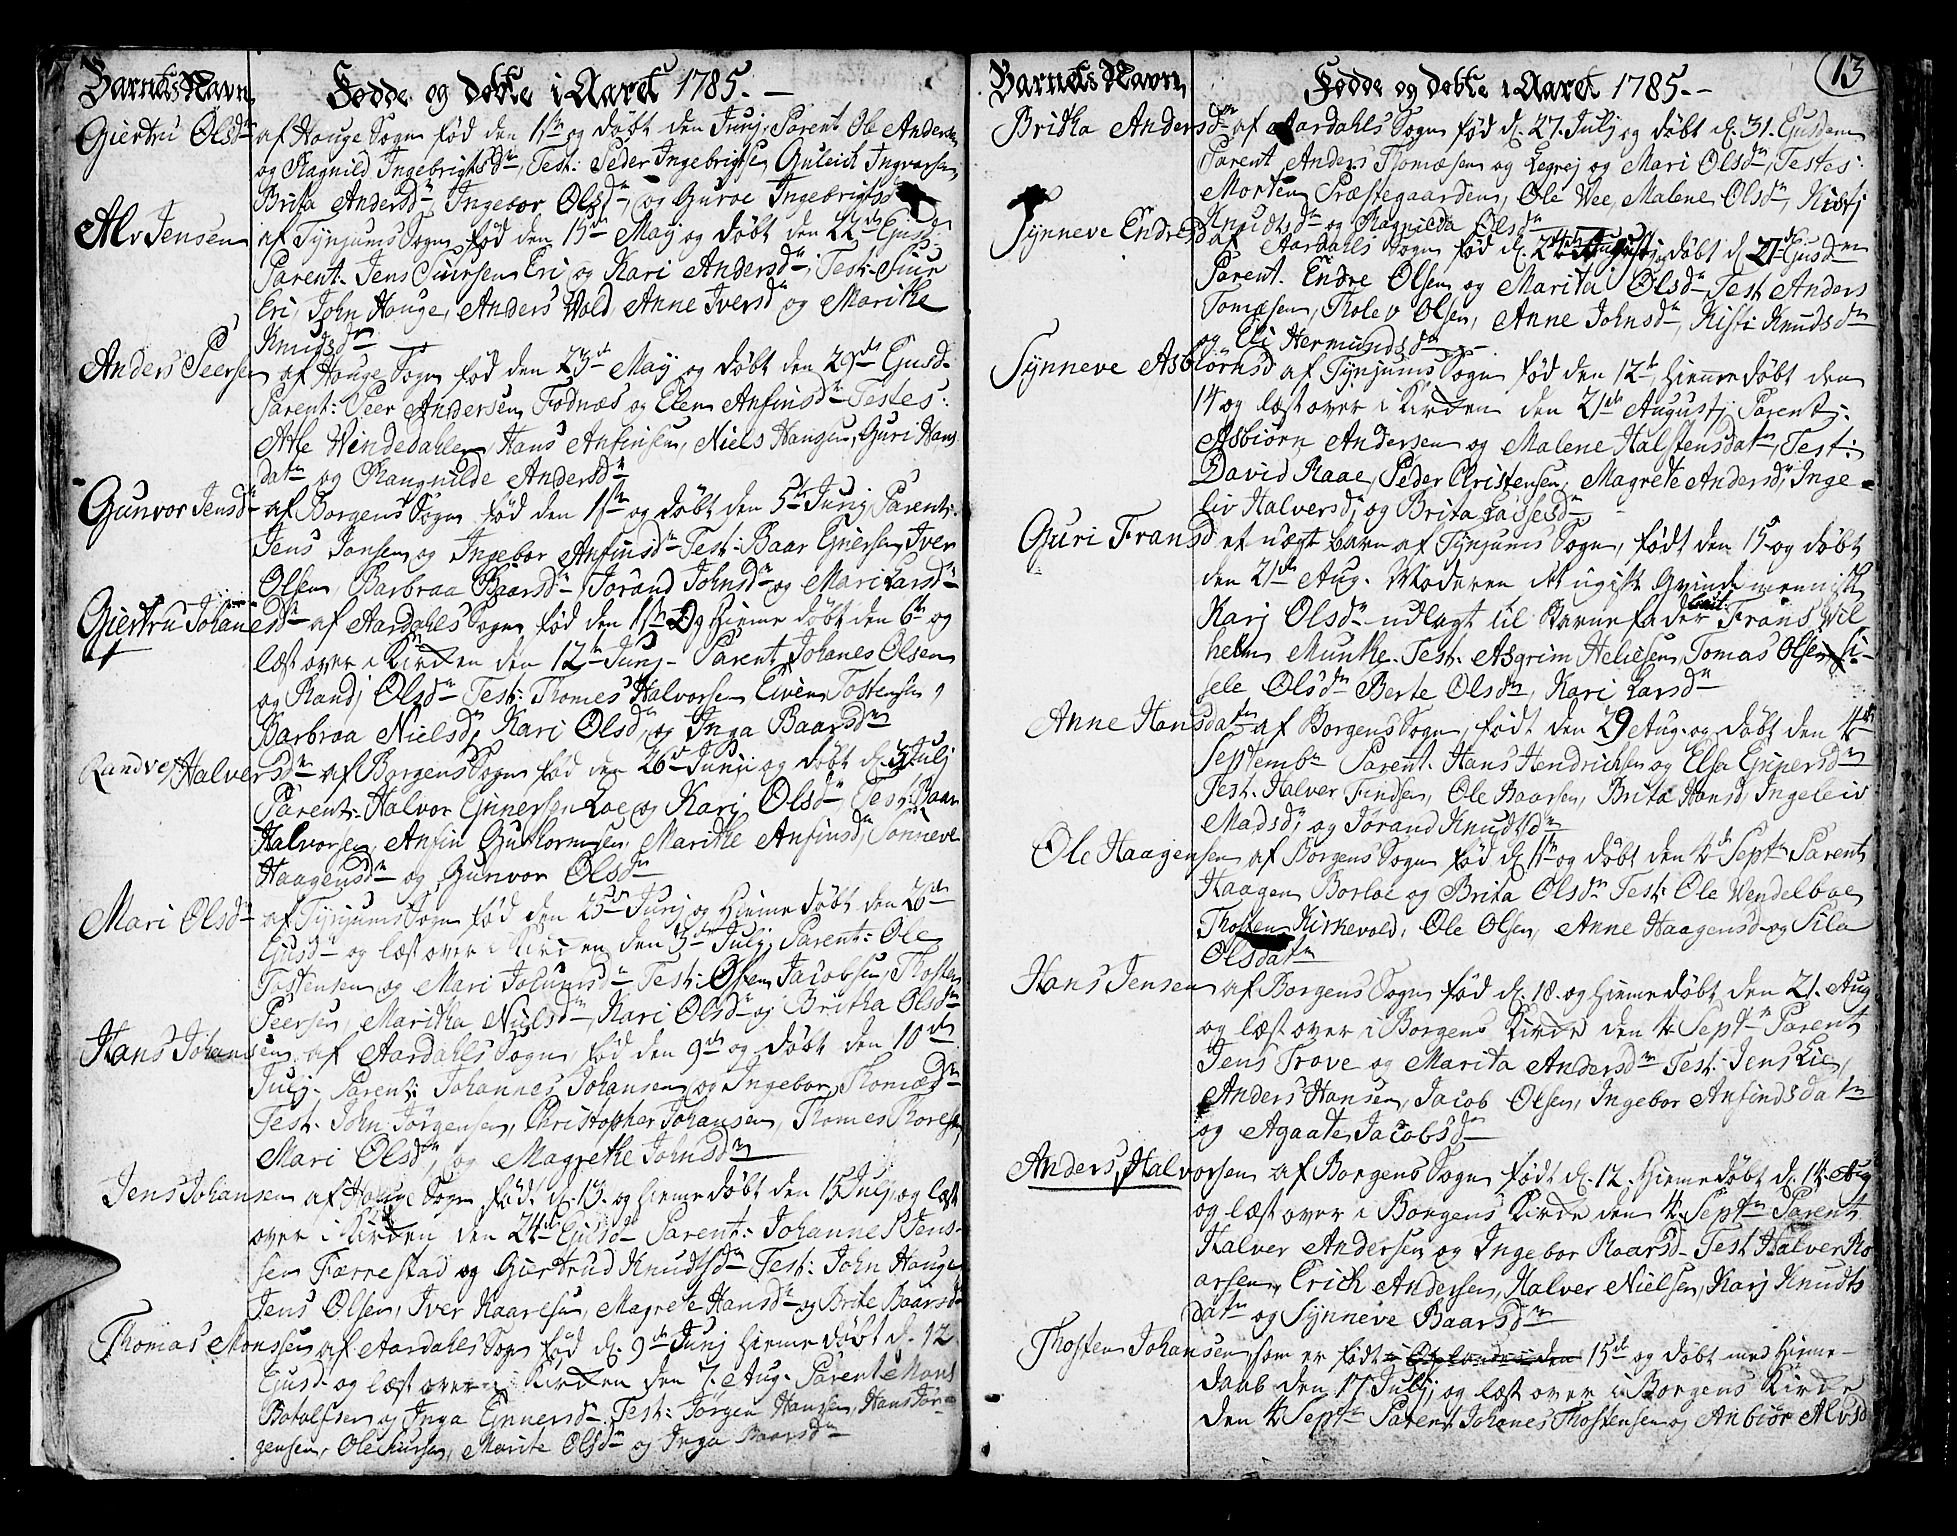 Barnets Navn
Fødde og døbte i Aaret 1785. –
Giertru Olsdr af Houge Sogn fød den 1ste og døbt den Junj, Parent Ole Andersen
og Ragnild Ingebrigtsdr, Test: Peder Ingebrigtsen Guleich Ingvorsen
Brita Andersdr, Ingebor Olsdr, og Guroe Ingebrigtsd
Alv Jensen af Tynjums Sogn fød den 15de May og døbt den 22de Ejusd
Parent. Jens Siursen Eri og Kari Andersdr, Test: Siur
Eri, John Houge, Anders Wold, Anne Iversdr og Marithe
Knudsdr –
Anders Peersen af Houge Sogn fød den 23de May og døbt den 29de Ejusd.
Parent: Peer Andersen Fodnæs og Elen Anfinsdr Testes:
Atle Windedahlen, Hans Anfinsen, Niels Haugen, Guri Hans
datr og Rangnilde Andersdr
Gunvor Jensdr af Borgens Sogn fød den 1ste og døbt den 5te Junj, Parent:
Jens Jansen og Ingebor Anfinsdr Test: Baar Ejnersen, Iver
Olsen, Barbraa Baarsdr, Jorand Johnsdr og Mari Larsdr
Giertru Johanesdr af Aardahls Sogn fød den 1ste Og Hieme døbt den 6te og
læst over i Kirken den 12te Junj – Parent Johanes Olsen
og Randj Olsdr Test: Thomes Halvorsen Eiven Tostensen,
Barbraa Nielsdr, Kari Olsd, og Inga Baarsdr
Randvej Halversdr af Borgens Sogn fød den 26de Junji og døbt d. 3 Julj
Parent: Halvor Ejnersen Loe og Kari Olsdr Test: Baar
Halvorsen, Anfin Guthormsen, Marithe Anfinsdr, Sønneve
Haagensdr og Gunvor Olsdr
Mari Olsdr af Tynjums Sogn fød den 25de Junj og Hieme døbt den 26de
Ejusdr og læst over i Kirken den 3de Julj, Parent: Ole
Tostensen og Mari Joensdr Test: Osten Jacobsen, Thosten
Peersen, Maritha Nielsdr, Kari Olsdr og Britha Olsdr
Hans Johansen af Aardahls Sogn, fød den 9de og døbt den 10de
Julj. Parent: Johannes Johansen og Ingebor Thomædr
Test. John Jørgensen, Christopher Johansen, Thomes Thoresen,
Mari Olsdr, og Magrethe Johnsdr
Jens Johansen af Houge Sogn, fød. d. 13. og Hieme døbt den 15 Julj og læst
over i Kirken den 24de Ejusd Parent: Johannes Jens-
sen Færrestad og Giertrud Knudtsdr Test: John Houge
Jens Olsen, Iver Kaaresen, Magrete Hansdr og Brite Baarsd
Thomas Monssen af Aardahls Sogn fød d. 9de Junj Hieme døbt d. 12
Ejusd og læst over i Kirken den 7. Aug. Parent Mons
Botolfsen og Inga Ejnersdr Test: Jørgen Hansen, Hans Jør-
gensen, Ole Siursen, Marite Olsdr og Inga Baarsdr
13
Barnets Navn,
Fødde og døbte i Aaret 1785. –
Britha Andersdr af Aardahls Sogn fød d. 27. Julj og døbt d. 31. Ejusdem
Parent Anders Thomæsen og Legrej og Mari Olsdr, Testes:
Morten Præstegaarden, Ole Wee, Malene Olsdr, Kistj
Knudtsdr og Ragnilda Olsdr
Synneve Endresd af Aardahls Sogn fød d. 24de Augusti døbt d. 27de Ejusdem
Parent. Endre Olsen og Marita Olsdr Test Anders
Tomæsen, Tholev Olsen, Anne Johnsdr, Kisti Knudsdr
og Eli Hermundsdr –
Synneve Asbiörnsd af Tynjums Sogn fød den 12te, Hieme døbt den
14 og læst over i Kirken den 21de Augustj Parent:
Asbiørn Andersen og Malene Halstensdatr, Test:
David Raae, Peder Christensen, Magrete Andersdr, Inge-
liv Halversdr, og Brita Lassesdr
Guri Fransd et uægt barn af Tynjums Sogn, født den 15 og døbt
den 21de Aug. Moderen et ugift Qvindemenniske
Karj Olsdr udlagt til Barnefader Frans Wil
helm Munthe. Test: Asgrim Heliesen, Tomas Olsen, Si-
sele Olsdr Berte Olsdr, Kari Larsdr
Anne Hansdatr af Borgens Sogn, født den 29 Aug. og døbt den 4de
Septembr Parent. Hans Hendrichsen og Elsa Ejnersdr
Test. Halver Findsen, Ole Baarsen, Brita Hansd, Ingeleiv
Madsdr, og Jorand Knudtsdr
Ole Haagensen af Borgens Sogn fød d. 1ste og døbt den 4de Septr Parent
Haagen Borloe og Brita Olsdr Test: Ole Wendelboe
Thosten Kirkevold, Ole Olsen, Anne Haagensd og Sila
Olsdatr
Hans Jensen af Borgens Sogn fød d. 18. og Hieme døbt den 21. Aug
og læst over i Borgens Kirke den 4 Septr Parent
Jens Trove og Marita Andersdr Test: Jens Lie,
Anders Hansen, Jacob Olsen, Ingebor Anfindsdatr
og Agaate Jacobsdr
Anders Halvorsen af Borgens Sogn født d. 12. Hieme døbt d. 14. Aug
og læst over i Borgens Kirke den 4. Septr Parent
Halver Andersen og Ingebor Roarsd Test Halver Ro
arsen, Erich Andersen, Halver Nielsen, Karj Knudts
datr og Synneve Baarsdr
Thosten Johansen, som er født 15de og døbt med Hieme-
daab den 17 Julj, og læst over i Borgens Kirke
den 4 Septr Parent Johanes Thostensen og Anbiør Alvsd